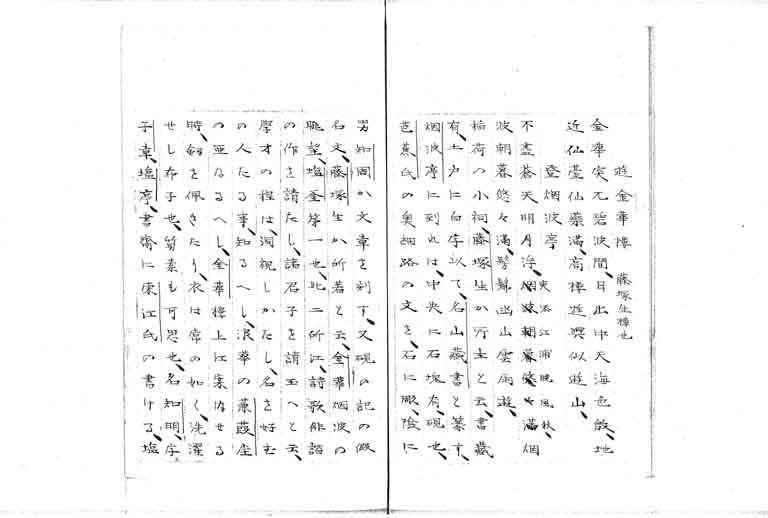 遊金華樓 藤塚生樓也
金華突兀碧波間、日出中天海色敵、地
近仙臺仙藥滿、高樓遊興似遊山、
登烟波亭
不盡蒼天明月浮、
波朝暮悠々滿、出山雲雨遊、
稲荷の小祠、藤塚生か所主と云、書藏
有、土戸に白字以て、名山藏書と篆す、
烟波亭に到れは、中央に石塊有、硯也、
芭蕉氏の奥細路の文を、石に彫、陰に
男知周か文章を刻す、又硯の記の假
名文、藤塚生か所著と云、金華烟波の
眺望、塩釜第一也、此二所に、詩歌俳諧
の作を請たし、諸君子を請玉へと云、
學才の程は、洞視しかたし、名を好む
の人たる事、知るへし、浪華の蒹葭座
の亜なるへし、金華樓上に案内せる
時、劔を佩きたり、衣は席の如く、洗濯
せし布子也、質素も可思也、名知明、字
子章、塩亭、書齋に東江氏の書ける、塩